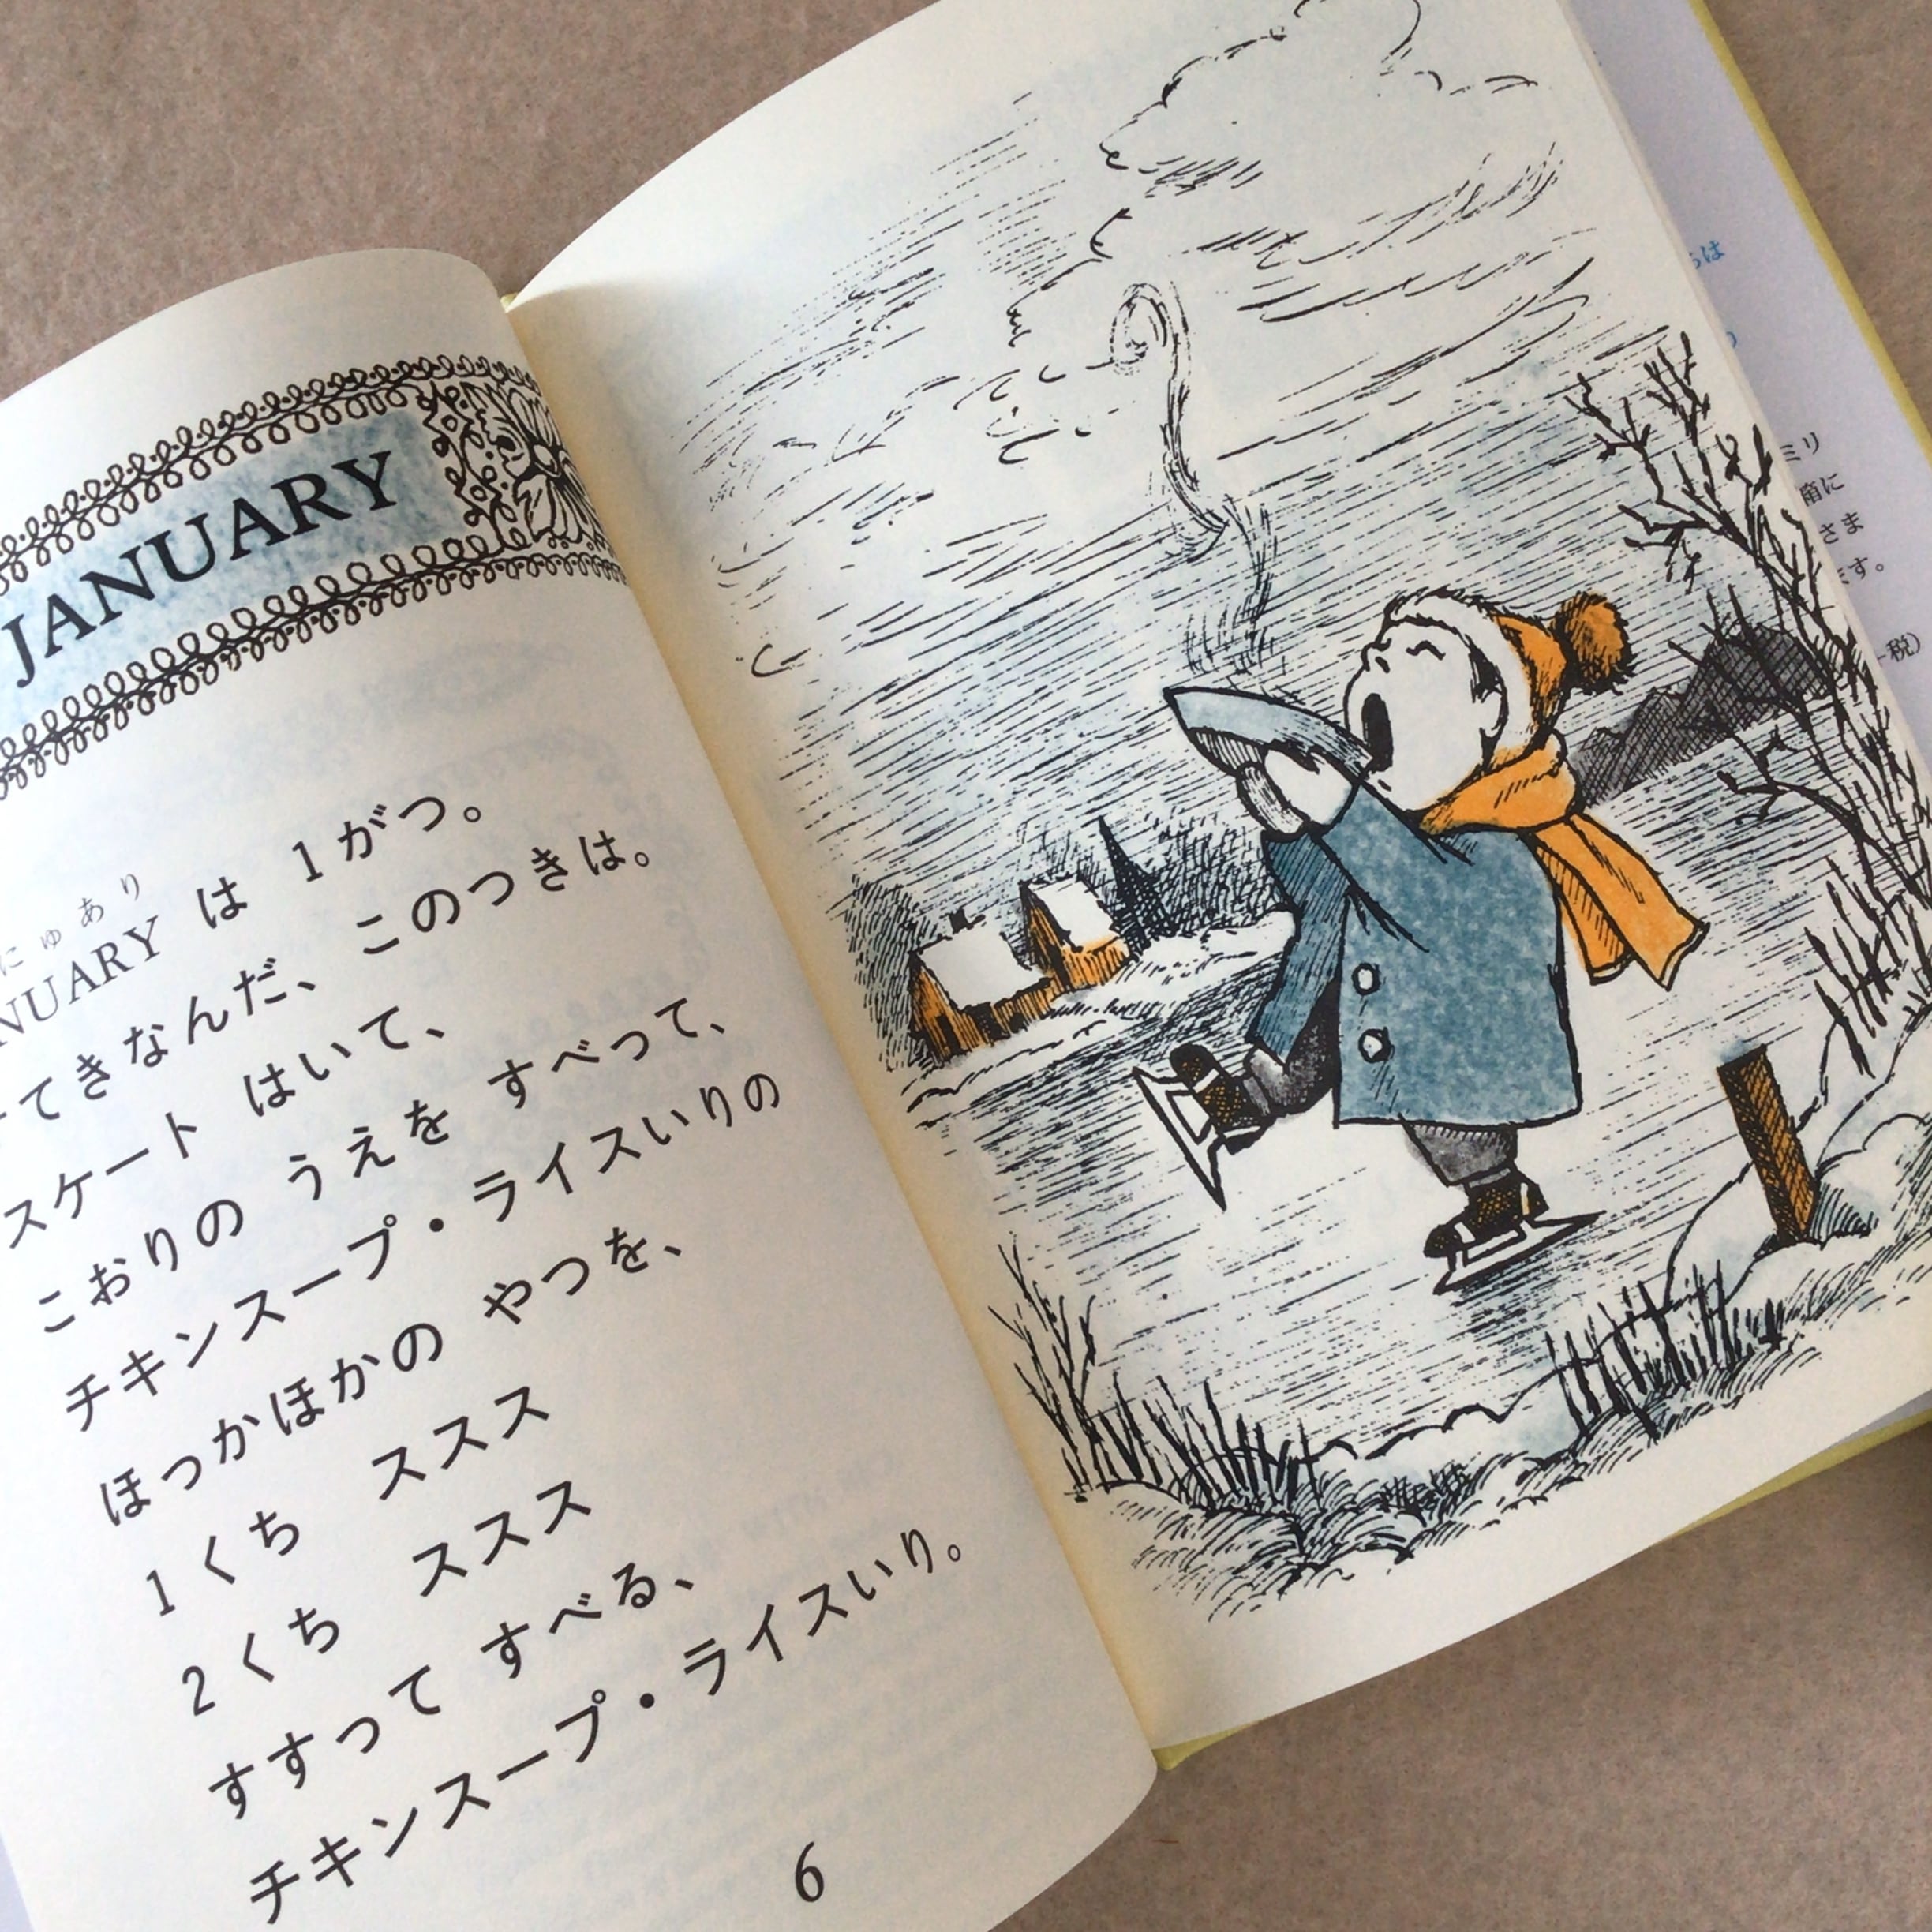 JANUARY
にゅあり
NUARY は 1がつ。
てきなんだ、このつきは。
スケート はいて、
こおりの うえを すべって、
チキンスープ・ライスいりの
ほっかほかの やつを、
1くち ススス
2くち ススス
すすって すべる、
チキンスープ・ライスいり。
6
は
ミリ
箱に
さま
ます。
税)